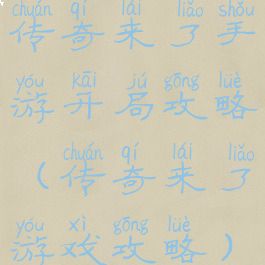 chuán qí lái liǎo shǒu
传奇来了手
yóu kāi jú gōng lüè
游开局攻略
chuán qí lái liǎo
（传奇来了
yóu xì gōng lüè
游戏攻略）